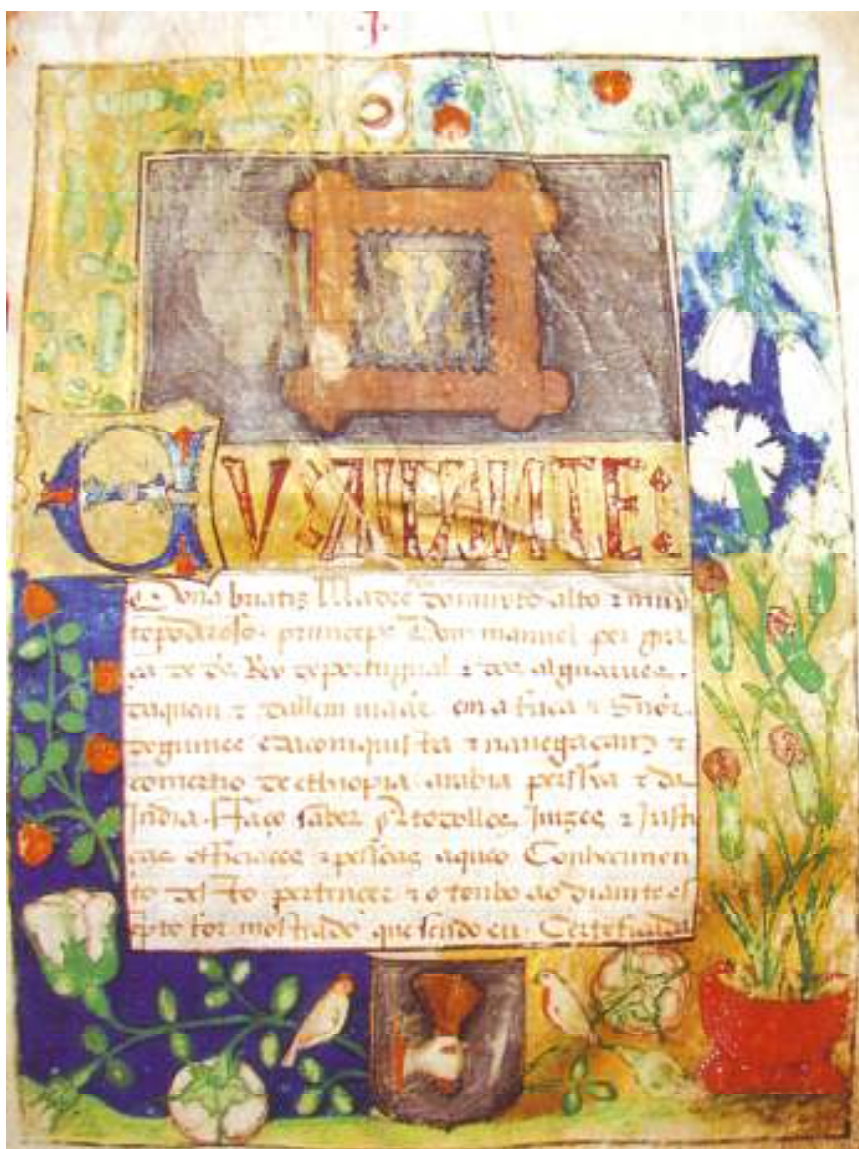 EU A IFFANTE:
Dona briatiz Madre domuyto alto z muy
tepoderoso. princepe Dom manuel per gra
ça de ds Rey deportugual z dos alguarues.
daquem z dallem maar em africa z Snor.
deguinee edaconquista z nauegacam z
comercio de ethiopia arabia perssia z da
India. Faço saber Juizes z Justi
ças officiaees z pessoas aqueo Conhecimen
to desto pertencer z o tenho ao diante es
pto for mostrado que sendo eu. Certeficada